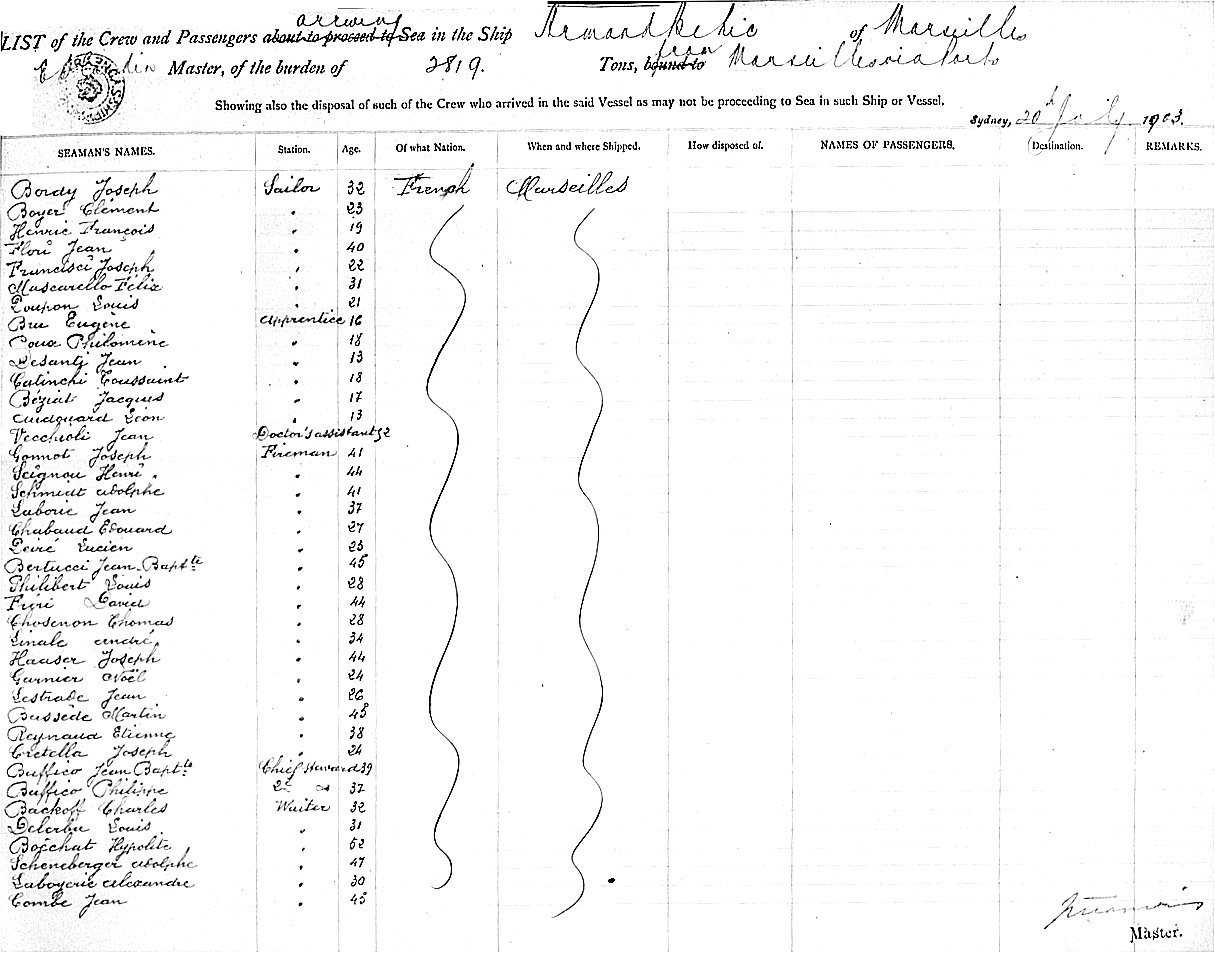 arriving
LIST of the Crew and Passengers about to proceed to Sea in the Ship Armand Behic of Marseilles
Master, of the burden of 2819. Tons, bound to from Marseilles via Ports
Showing also the disposal of such of the Crew who arrived in the said Vessel as may not be proceeding to Sea in such Ship or Vessel.
Sydney, 20th July 1903.
SEAMAN'S NAMES. Station. Age. Of what Nation. When and where Shipped. How disposed of. NAMES OF PASSENGERS. Destination. REMARKS.
Bordy Joseph Sailor 32 French Marseilles
Boyer Clément " 23
Henric François " 19
Flori Jean " 40
Francisci Joseph " 22
Muscarello Félix " 31
Poupon Louis " 21
Bru Eugène Apprentice 16
Philomène " 18
Desanti Jean " 13
Catinchi Toussaint " 18
Béziat Jacques " 17
Léon " 13
Vecchioli Jean Doctor's assistant
Gonnot Joseph Fireman 41
Seignou Henri " 44
Schmidt Adolphe " 41
Laborie Jean " 37
Chabaud Edouard " 27
Peiré Lucien " 25
Bertucci Jean-Bapte " 45
Philibert Louis " 28
David " 44
Chosenon Thomas " 28
Linale André " 34
Haaser Joseph " 44
Garnier Noël " 24
Lestrade Jean " 26
Bussède Martin " 45
Reynaud Etienne " 38
Cretella Joseph " 24
Buffico Jean Bapte Chief steward 39
Buffico Philippe 2d " 37
Backoff Charles Waiter 32
Louis " 31
Boéchat Hypolite " 52
Scheneberger Adolphe " 47
Laboyerie Alexandre " 30
Combe Jean " 45
Master.